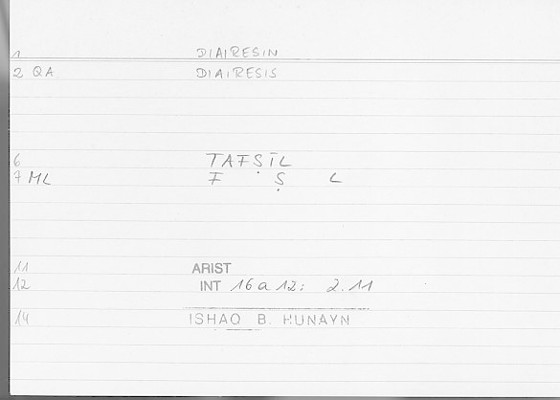 1 DIAIRESIN
2 QA DIAIRESIS
6 TAFṢĪL
7 ML F Ṣ L
11 ARIST
12 INT 16a12: 2.11
14 ISHAQ B. HUNAYN